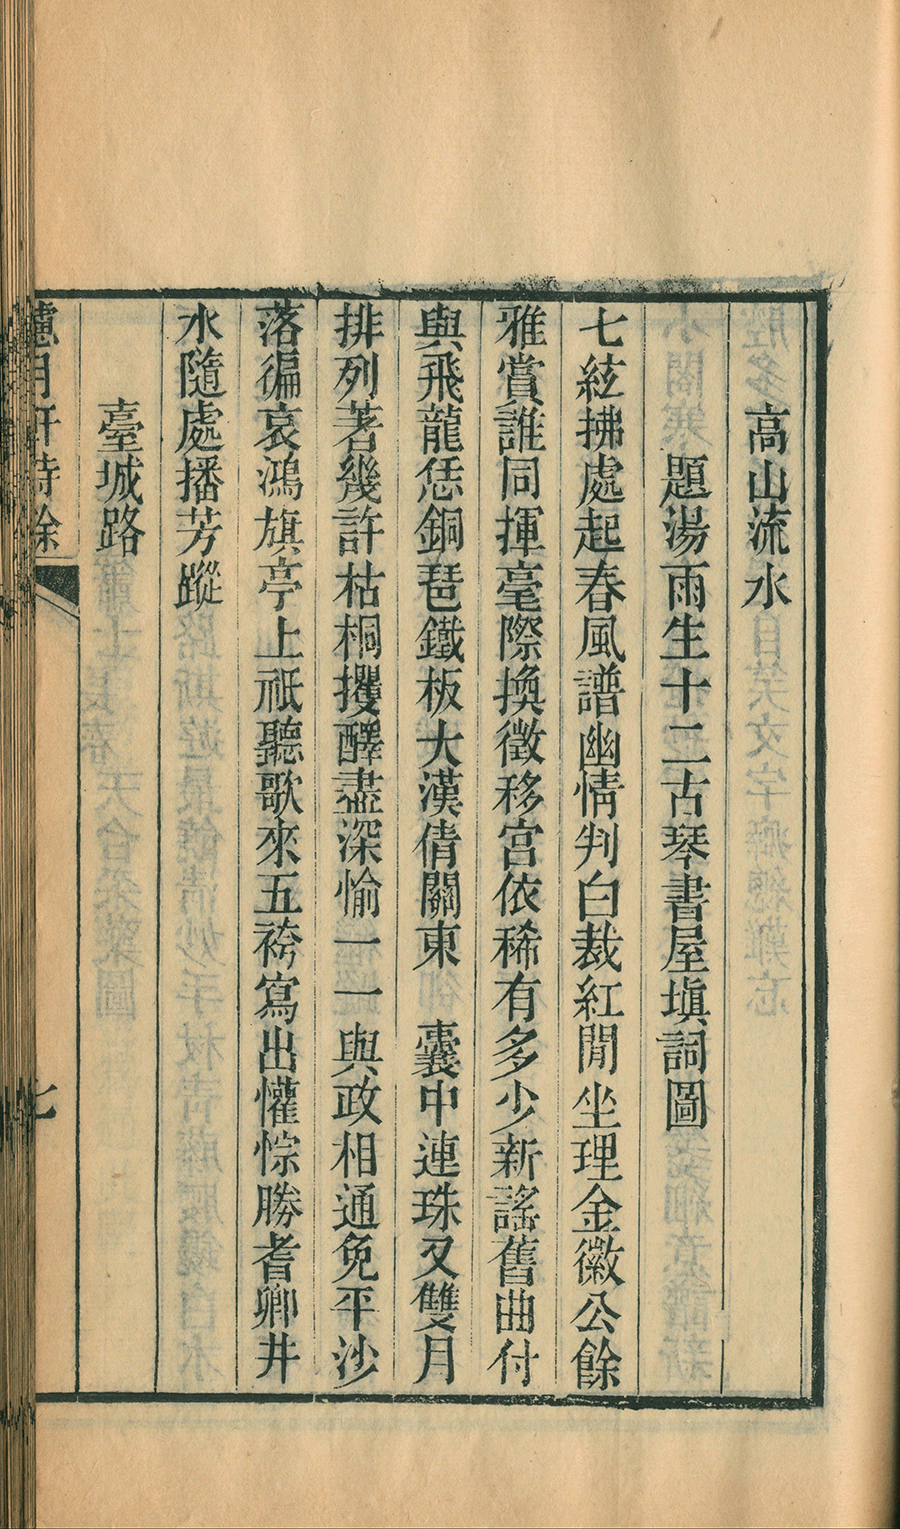 高山流水
題湯雨生十二古琴書屋塡詞圖
七絃拂處起春風譜幽情判白裁紅閒坐理金徽公餘
雅賞誰同揮毫際換徵移宮依稀有多少新謠舊曲付
與飛龍恁銅琶鐵板大漢倩關東　囊中連珠又雙月
排列著幾許枯桐攫醳盡深愉一一與政相通免平沙
落徧哀鴻旗亭上祇聽歌來五袴寫出懽悰勝耆卿井
水隨處播芳蹤
臺城路
月軒詩餘
七